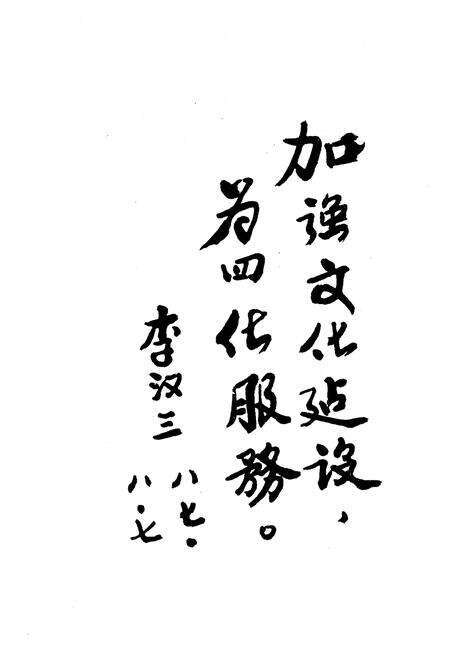 加强文化建设、
为四化服務。
李汉三
八七.
八.七